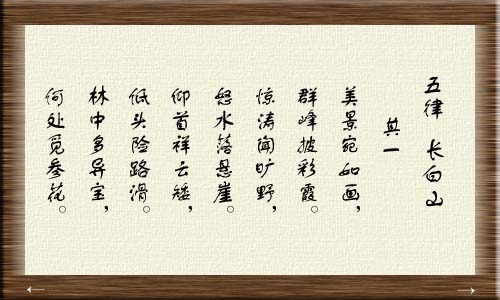 五律 长白山
其一
美景宛如画，
群峰披彩霞。
惊涛闻旷野，
怒水落悬崖。
仰首祥云矮，
低头险路滑。
林中多异宝，
何处觅参花。